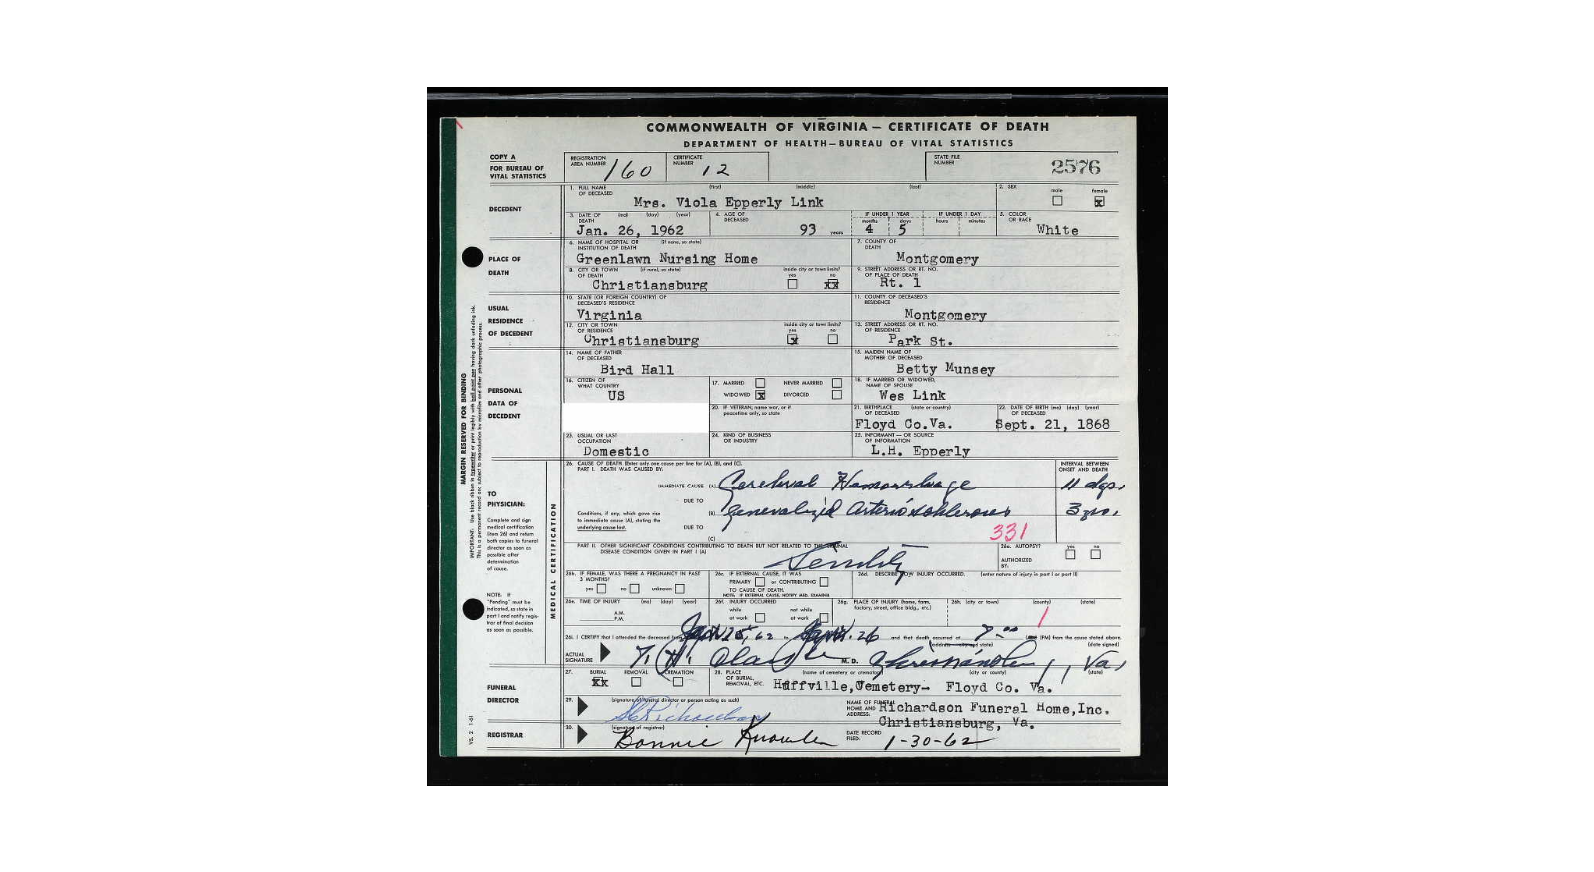 COMMONWEALTH OF VIRGINIA — CERTIFICATE OF DEATH
DEPARTMENT OF HEALTH—BUREAU OF VITAL STATISTICS
COPY A
FOR BUREAU OF
VITAL STATISTICS
REGISTRATION
AREA NUMBER 160
CERTIFICATE
NUMBER 12
STATE FILE
NUMBER 2576
DECEDENT
1. FULL NAME
OF DECEASED (first) (middle) (last)
Mrs. Viola Epperly Link
2. SEX male female x
3. DATE OF DEATH (mo) (day) (year)
Jan. 26, 1962
4. AGE OF
DECEASED
93 years
IF UNDER 1 YEAR months days
4 5
IF UNDER 1 DAY hours minutes
5. COLOR
OR RACE
White
PLACE OF
DEATH
6. NAME OF HOSPITAL OR
INSTITUTION OF DEATH (If none, so state)
Greenlawn Nursing Home
7. COUNTY OF
DEATH
Montgomery
8. CITY OR TOWN
OF DEATH (if rural, so state)
Christiansburg
inside city or town limits?
yes no xx
9. STREET ADDRESS OR RT. NO.
OF PLACE OF DEATH
Rt. 1
USUAL
RESIDENCE
OF DECEDENT
10. STATE (OR FOREIGN COUNTRY) OF
DECEASED'S RESIDENCE
Virginia
11. COUNTY OF DECEASED'S
RESIDENCE
Montgomery
12. CITY OR TOWN
OF RESIDENCE
Christiansburg
inside city or town limits?
yes x no
13. STREET ADDRESS OR RT. NO.
OF RESIDENCE
Park St.
PERSONAL
DATA OF
DECEDENT
14. NAME OF FATHER
OF DECEASED
Bird Hall
15. MAIDEN NAME OF
MOTHER OF DECEASED
Betty Munsey
16. CITIZEN OF
WHAT COUNTRY
US
17. MARRIED NEVER MARRIED
WIDOWED x DIVORCED
18. IF MARRIED OR WIDOWED,
NAME OF SPOUSE
Wes Link
20. IF VETERAN; name war, or if
peacetime only, so state
21. BIRTHPLACE (state or country)
OF DECEASED
Floyd Co.Va.
22. DATE OF BIRTH (mo) (day) (year)
OF DECEASED
Sept. 21, 1868
23. USUAL OR LAST
OCCUPATION
Domestic
24. KIND OF BUSINESS
OR INDUSTRY
25. INFORMANT — OR SOURCE
OF INFORMATION
L.H. Epperly
MARGIN RESERVED FOR BINDING
TO
PHYSICIAN:
Complete and sign
medical certification
(item 26) and return
both copies to funeral
director as soon as
possible after
determination
of cause.
NOTE. If
"Pending" must be
indicated, so state in
part I and notify regis-
trar of final decision
as soon as possible.
MEDICAL CERTIFICATION
26. CAUSE OF DEATH. (Enter only one cause per line for (A), (B), and (C).
PART I. DEATH WAS CAUSED BY:
INTERVAL BETWEEN
ONSET AND DEATH
IMMEDIATE CAUSE (A) Cerebral Hemorrhage 11 dys.
DUE TO
Conditions, if any, which gave rise
to immediate cause (A), stating the
underlying cause last.
(B) Generalized Arteriosclerosis
DUE TO
(C)
331
PART II. OTHER SIGNIFICANT CONDITIONS CONTRIBUTING TO DEATH BUT NOT RELATED TO THE TERMINAL
DISEASE CONDITION GIVEN IN PART I (A)
Senility
26a. AUTOPSY? yes no
AUTHORIZED
BY:
26b. IF FEMALE, WAS THERE A PREGNANCY IN PAST
3 MONTHS?
yes no unknown
26c. IF EXTERNAL CAUSE, IT WAS
PRIMARY or CONTRIBUTING
TO CAUSE OF DEATH.
NOTE. IF EXTERNAL CAUSE, NOTIFY MED. EXAMINER
26d. DESCRIBE HOW INJURY OCCURRED. (enter nature of injury in part I or part II)
26e. TIME OF INJURY (mo) (day) (year)
A.M.
P.M.
26f. INJURY OCCURRED
while
at work
not while
at work
26g. PLACE OF INJURY (home, farm,
factory, street, office bldg., etc.)
26h. (city or town) (county) (state)
26i. I CERTIFY that I attended the deceased and that death occurred at 7:00 (PM) from the cause stated above.
ACTUAL
SIGNATURE M. D. (date signed)
Va.
FUNERAL
DIRECTOR
27. BURIAL xx REMOVAL CREMATION
28. PLACE
OF BURIAL,
REMOVAL, ETC.
(name of cemetery or crematory) (city or county) (state)
Huffville, Cemetery— Floyd Co. Va.
29. (signature of funeral director or person acting as such)
NAME OF FUNERAL
HOME AND
ADDRESS:
Richardson Funeral Home,Inc.
Christiansburg, Va.
REGISTRAR
30. (signature of registrar)
Bonnie
DATE RECORD
FILED:
1-30-62